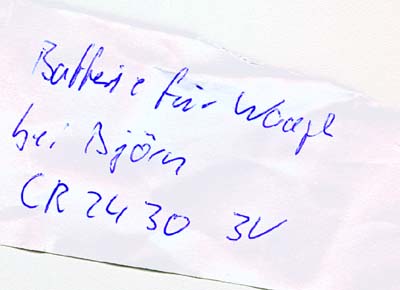 Batterie für Waage
bei Björn
CR 2430 3V